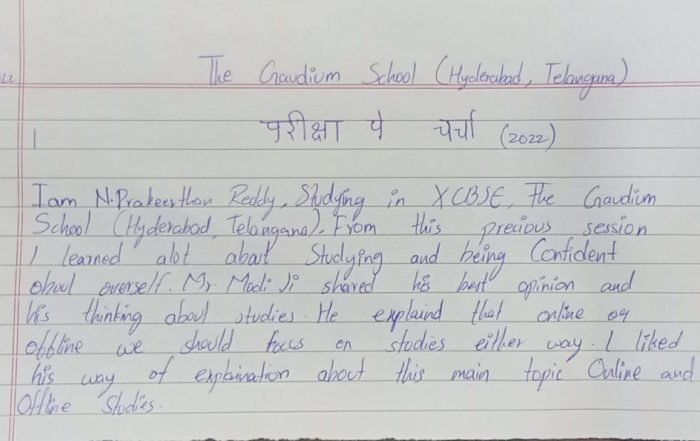 22
The Gaudium School (Hyderabad, Telangana)
परीक्षा पे चर्चा (2022)
I am N.Prakeerthan Reddy, Studying in X CBSE, The Gaudium
School (Hyderabad, Telangana). From this precious session
I learned alot about Studying and being Confident
about overself. Mr. Modi Ji shared his best opinion and
his thinking about studies. He explaind that online or
offline we should focus on studies either way. I liked
his way of explaination about this main topic Online and
Offline Studies.